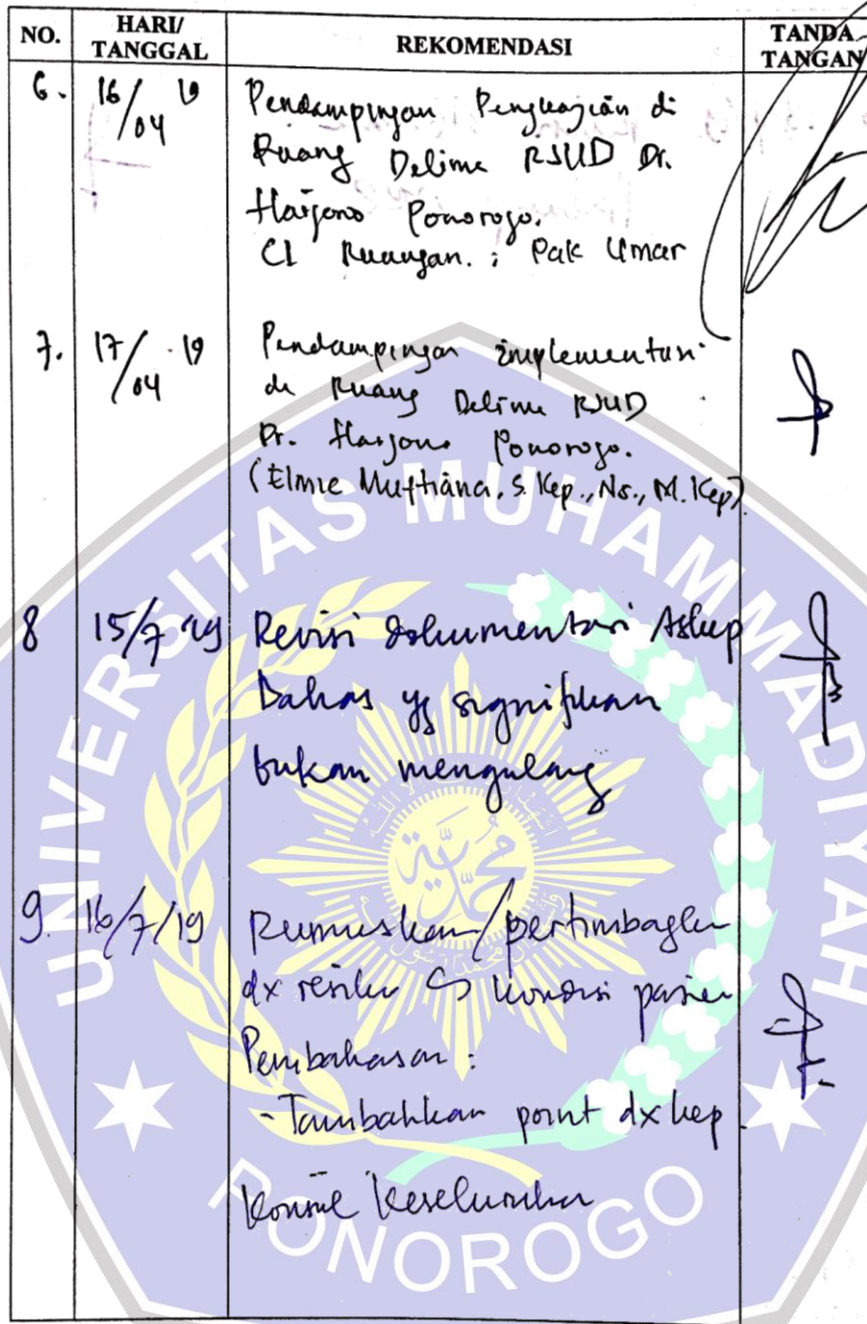 NO. HARI/ TANGGAL REKOMENDASI TANDA TANGAN
6. 16/04 19 Pendampingan Pengkajian di
Ruang Delima RSUD Dr.
Harjono Ponorogo.
CI Ruangan. : Pak Umar
7. 17/04 19 Pendampingan implementasi
di Ruang Delima RSUD
Dr. Harjono Ponorogo.
(Elmie Muftiana, S.Kep., Ns., M.Kep)
8 15/7 '19 Revisi dokumentasi Askep
Bahas yg signifikan
bukan mengulang
9. 16/7/19 Rumuskan/pertimbagkn
dx resiko kondisi pasien
Pembahasan :
- Tambahkan point dx kep
Konsul Keseluruhan
UNIVERSITAS MUHAMMADIYAH
PONOROGO
محمدية